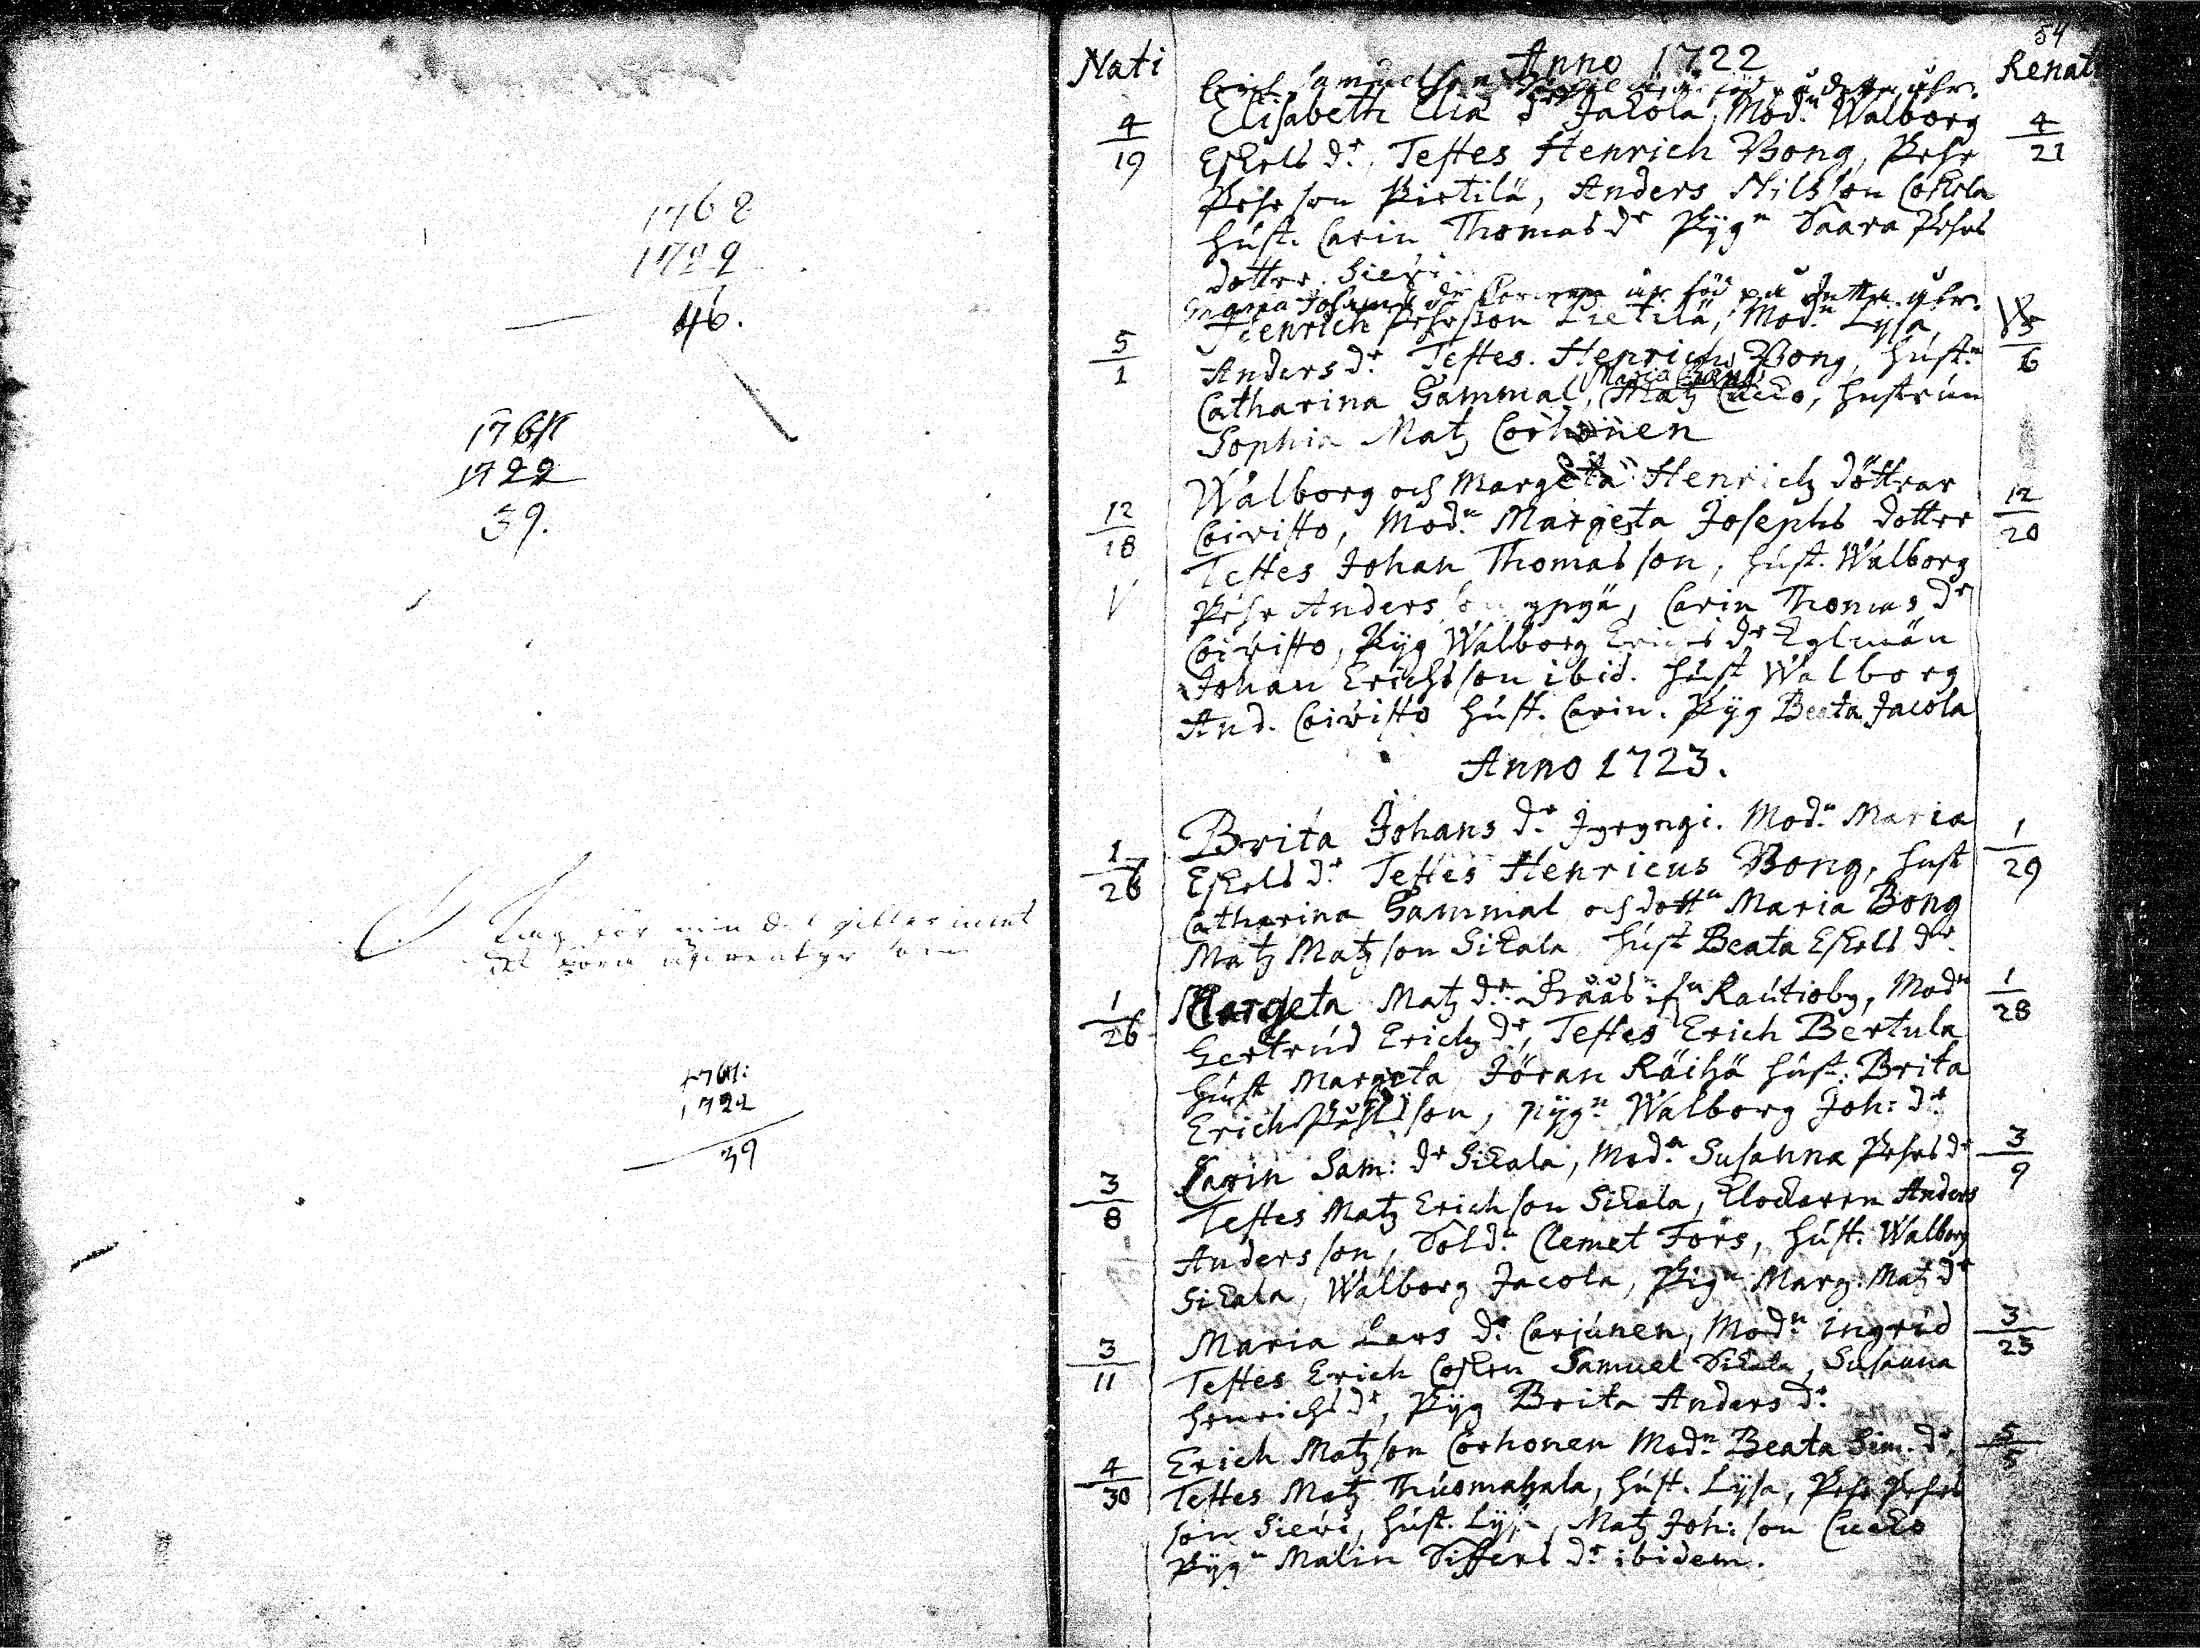 1768
1722
46.
1761
1722
39.
1761:
1722
39
54
Nati
Anno 1722
Renati
Erich Samuelson är föd på detta åhr.
4
19
Elisabeth Elia dr Jacola, Modn Walborg
4
21
Eskels dr, Testes Henrich Bong, Pehr
Pehrson Pietilä, Anders Nilsson Coskela
hust. Carin Thomas dr Pygn Saara Pehrs
dotter Sievi.
Johans dr är föd på detta åhr.
5
1
Henrich Pehrsson Pietilä, Modn Lysa
5
6
Anders dr Testes. Henrich Bong, hustn
Maria Bong
Catharina Gammal, Matz Cucko, hustrun
Sophia Matz Corhonen
12
18
Walborg och Margeta Henrichz döttrar
12
20
Coivisto, Modn Margeta Josephs dotter
Testes Johan Thomasson, hust. Walborg
V
Pehr Andersson ypyä, Carin Thomas dr
Coivisto, Pyg Walborg Erichs dr
Johan Erichsson ibid. hust Walborg
And. Coivisto hust. Carin. Pyg Beata Jacola
Anno 1723.
1
26
Brita Johans dr Jyryngi. Modn Maria
1
29
Eskels dr Testes Henricus Bong, hust
Catharina Gammal och dottn Maria Bong
Matz Matzson Sikala hust Beata Eskels dr
1
26
Margeta Matz dr Rautioby, Modn
1
28
Gertrud Erichz dr, Testes Erich Bertula
hust Margeta Jöran Räihä hust: Brita
Erich son, pygn Walborg Joh: dr
3
8
Carin Sam: dr Sikala, Modn Susanna Pehrs dr
3
9
Testes Matz Erichson Sikala, Klockaren Anders
Andersson, Soldn Clemet Fors, hust. Walborg
Sikala, Walborg Jacola, Pign Marg: Matz dr
3
11
Maria Lars dr Carjunen, Modn Ingrid
3
25
Testes Erich Coskeu Samuel Sikala, Susanna
Henrichs dr, Pyg Brita Anders dr
4
30
Erich Matzson Corhonen Modn Beata Sim. dr,
5
5
Testes Matz Thuomahala, hust. Lysa, Pehr Pehrs
son Sievi, hust. Lysa, Matz Joh: son Cucko
Pygn Malin Siffers dr ibidem.